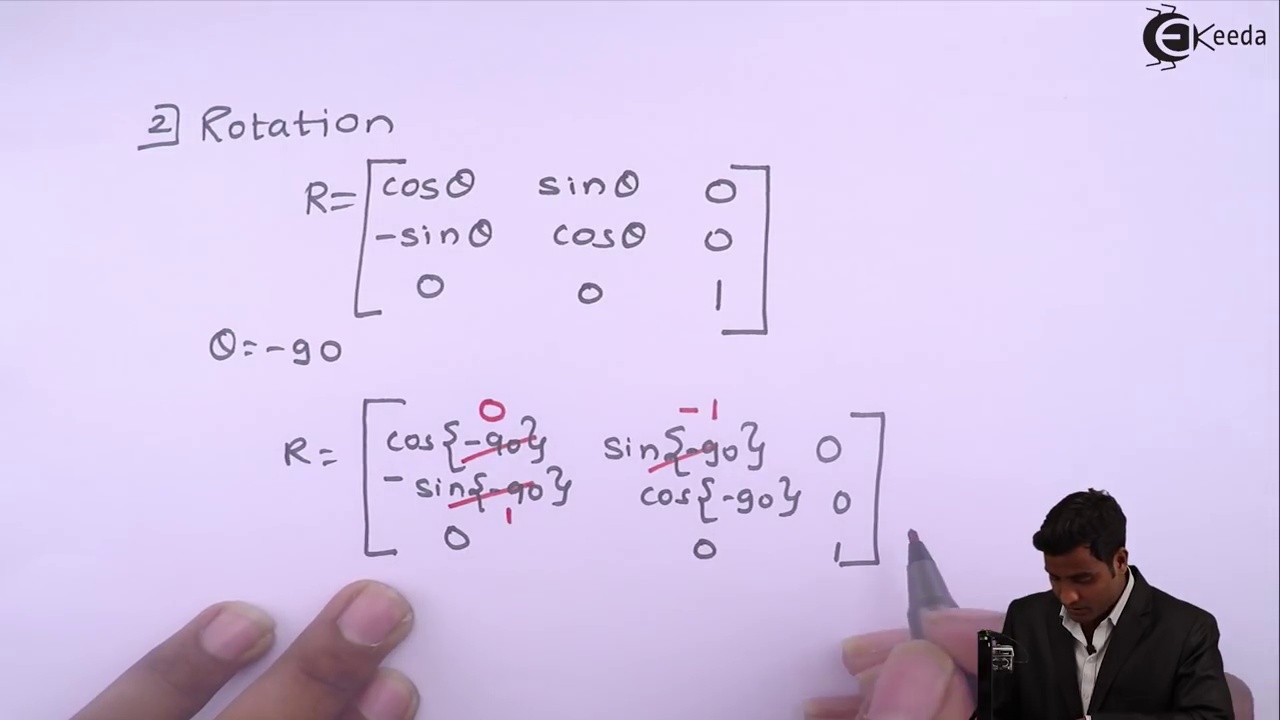 EKeeda
2] Rotation
R= [cosθ sinθ 0
-sinθ cosθ 0
0 0 1]
θ=-90
0 -1
R= [cos{-90} sin{-90} 0
-sin{-90} cos{-90} 0
1
0 0 1]